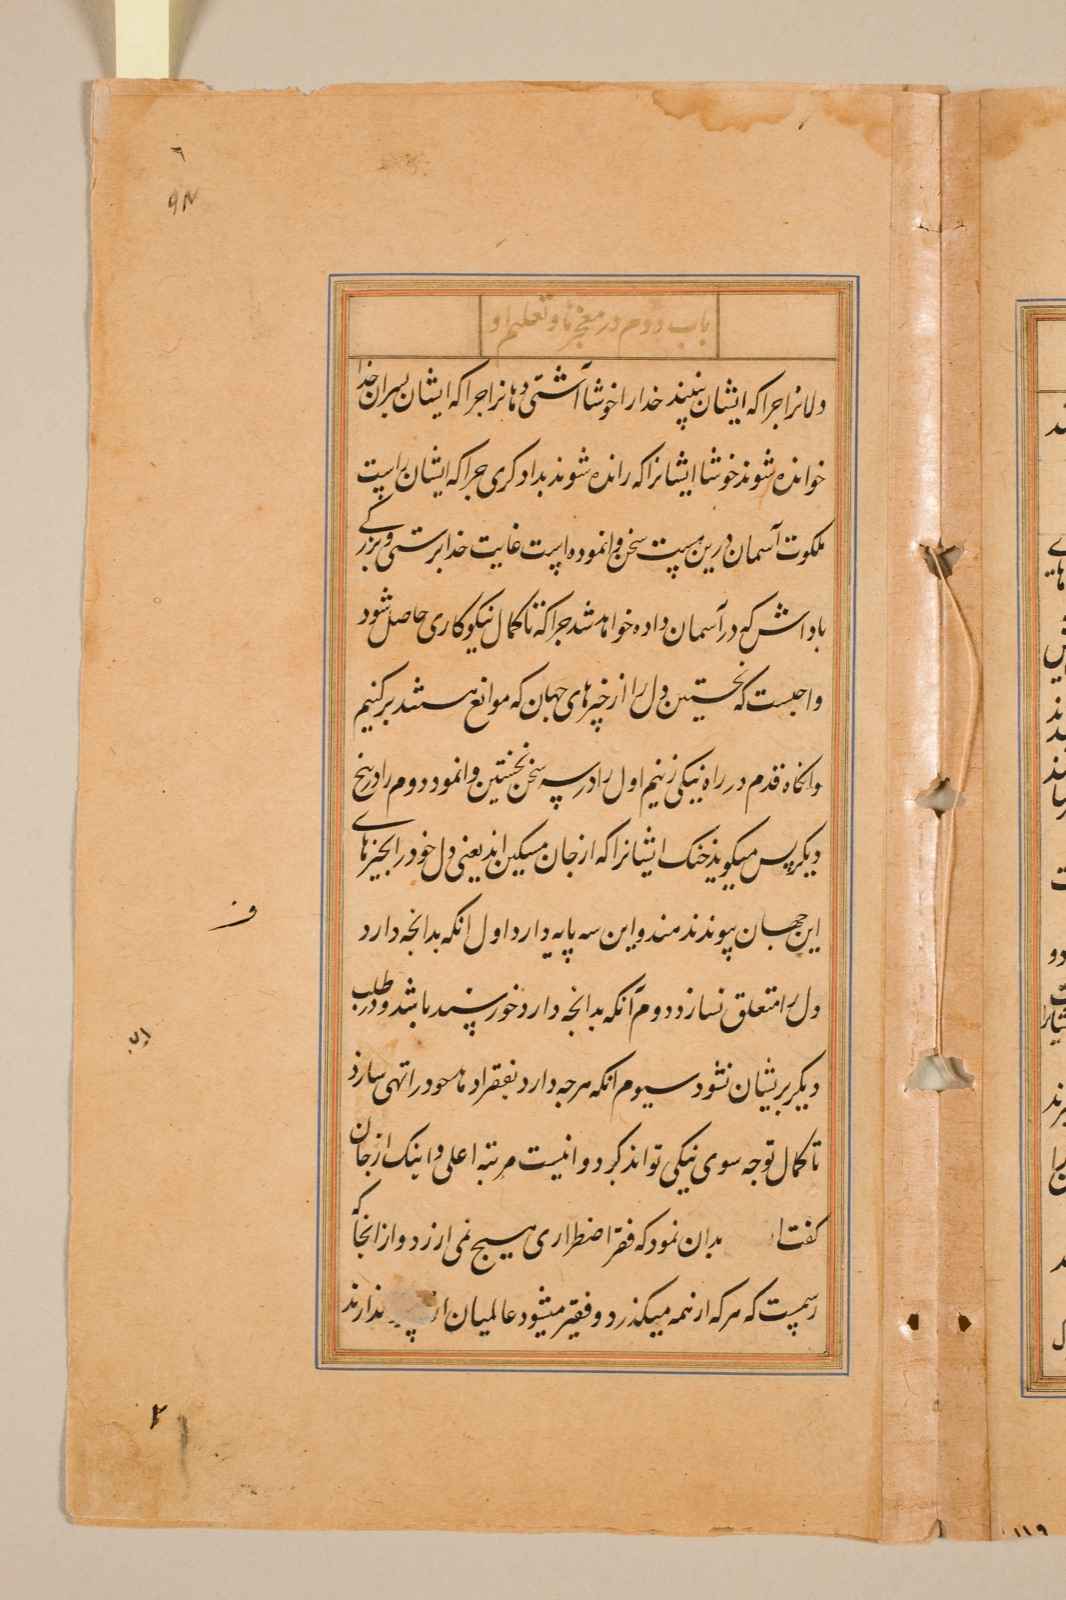 باب دوم در معجزها و تعلیم او
دلانرا جراکه ایشان بینند خدا را خوشا آشتی دهانرا جراکه ایشان بسران خدا
خوانده شوند خوشا ایشانرا که رانده شوند بدادکری جراکه ایشان راست
ملکوت آسمان درین بیست سخن وانموده است غایت خدابرستی و بزرکی
باداش که در آسمان داده خواهد شد جراکه تا کمال نیکوکاری حاصل شود
واجبست که نخستین دل را از جیزهای جهان که موانع هستند برکنیم
وانکاه قدم در راه نیکی زنیم اول را در سه سخن نخستین وانمود دوم را در بنج
دیکر پس میکوید خنک ایشانرا که از جان مسکین اند یعنی دل خود را بجیزهای
این جهان پیوند ندهند و این سه پایه دارد اول انکه بدانجه دارد
دل را متعلق نسازد دوم آنکه بدانجه دارد خورسند باشد و در طلب
دیکر بریشان نشود سیوم انکه هرجه دارد بفقرا دهد و خود را تهی سازد
تا کمال توجه سوی نیکی تواند کرد و اینست مرتبه اعلی و اینک از جان
کفت بدان نمود که فقر اضطراری هیج نمی ارزد و از انجا که
رسمست که هرکه از همه میکذرد و فقیر میشود عالمیان ندارند
۲
۱۱۹